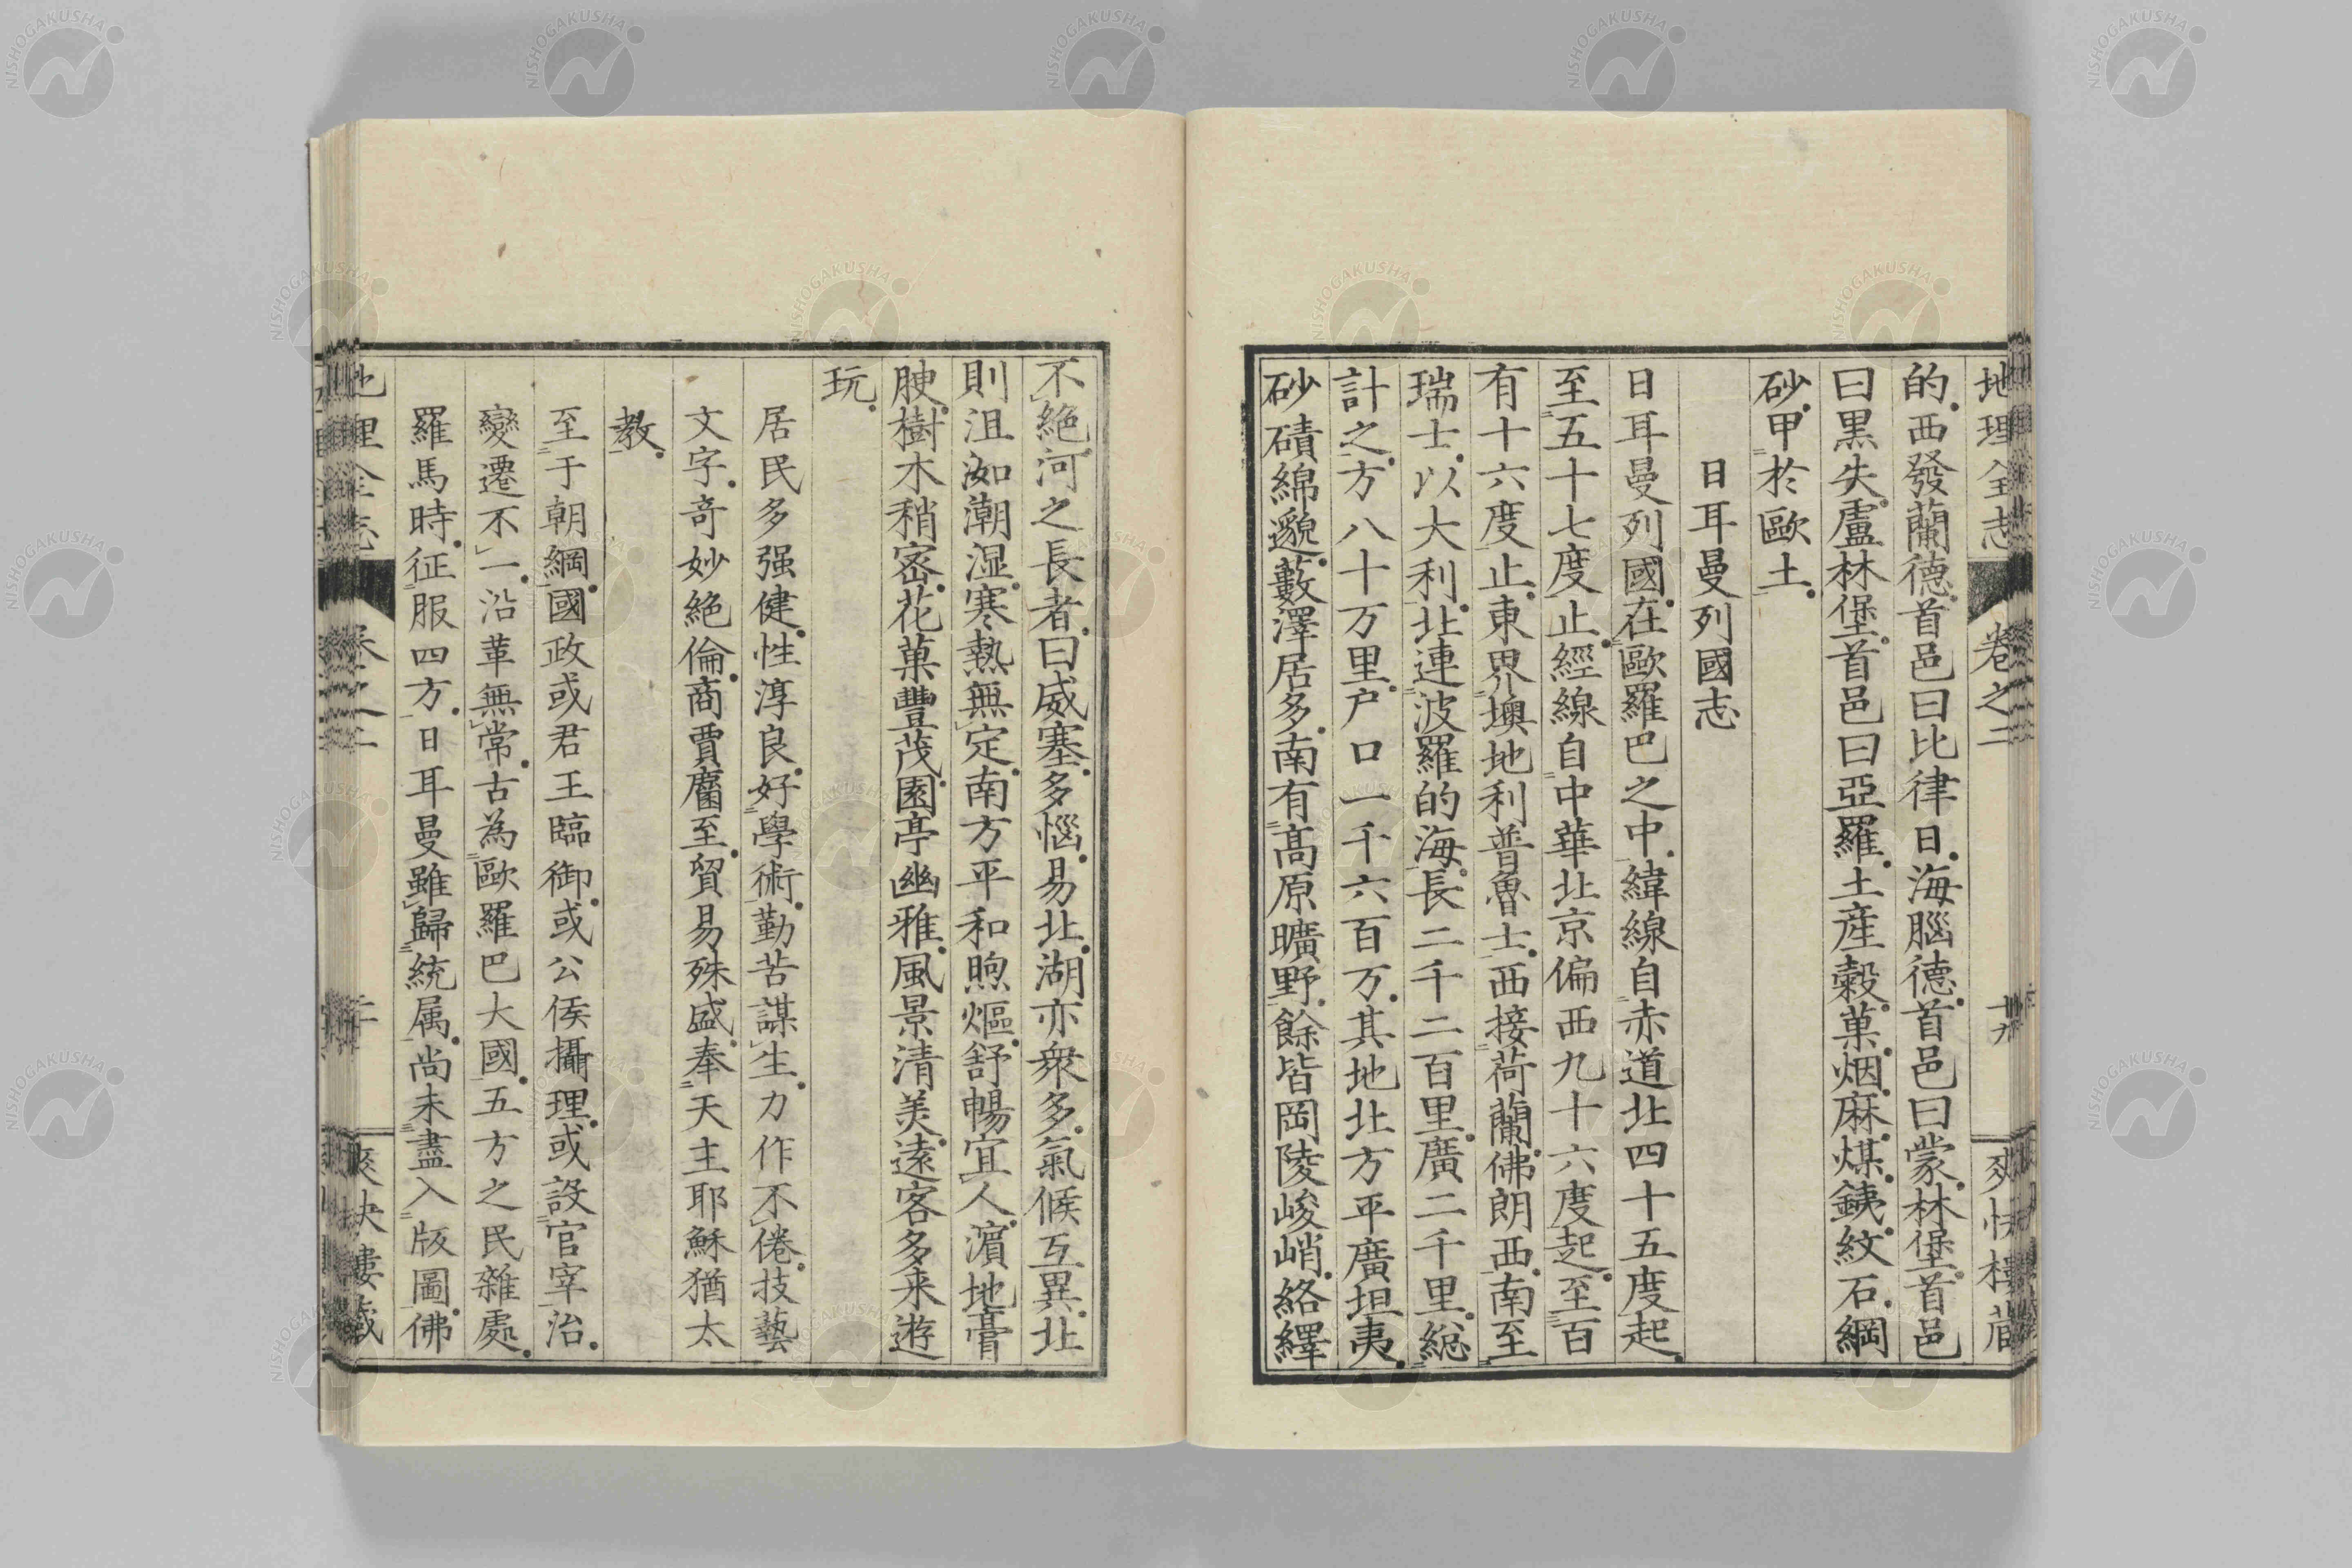 地理全志 卷之二 十九 爽快樓藏
的。西發蘭德。首邑曰比律日。海腦德。首邑曰蒙。林堡。首邑
曰黒失。盧林堡。首邑曰亞羅。土産穀。菓。烟。麻。煤。銕。紋石。綱
砂。甲於歐土。
日耳曼列國志
日耳曼列國。在歐羅巴之中。緯線自赤道北四十五度起。
至五十七度止。經線自中華北京偏西九十六度起。至百
有十六度止。東界墺地利普魯士。西接荷蘭。佛朗西。南至
瑞士。以大利。北連波羅的海。長二千二百里。廣二千里。總
計之。方八十万里。户口一千六百万。其地北方平廣坦夷。
砂磧綿邈。藪澤居多。南有高原曠野。餘皆岡陵峻峭。絡繹
不絶。河之長者。曰威塞。多惱。易北。湖亦衆多。氣候互異。北
則沮洳潮湿。寒熱無定。南方平和煦熰。舒暢宜人。濵地膏
腴。樹木稍密。花菓豐茂。園亭幽雅。風景清美。遠客多来遊
玩。
居民多强健。性淳良。好學術。勤苦謀生。力作不倦。技藝
文字。奇妙絶倫。商賈麕至。貿易殊盛。奉天主耶穌猶太
教。
至于朝綱。國政或君王臨御。或公侯攝理。或設官宰治。
變遷不一。沿革無常。古為歐羅巴大國。五方之民雜處。
羅馬時。征服四方。日耳曼雖歸統属。尚未盡入版圖。佛
地理全志 卷之二 二十 爽快樓藏
NISHOGAKUSHA